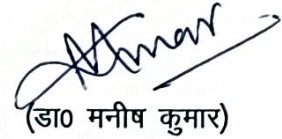 (डा0 मनीष कुमार)